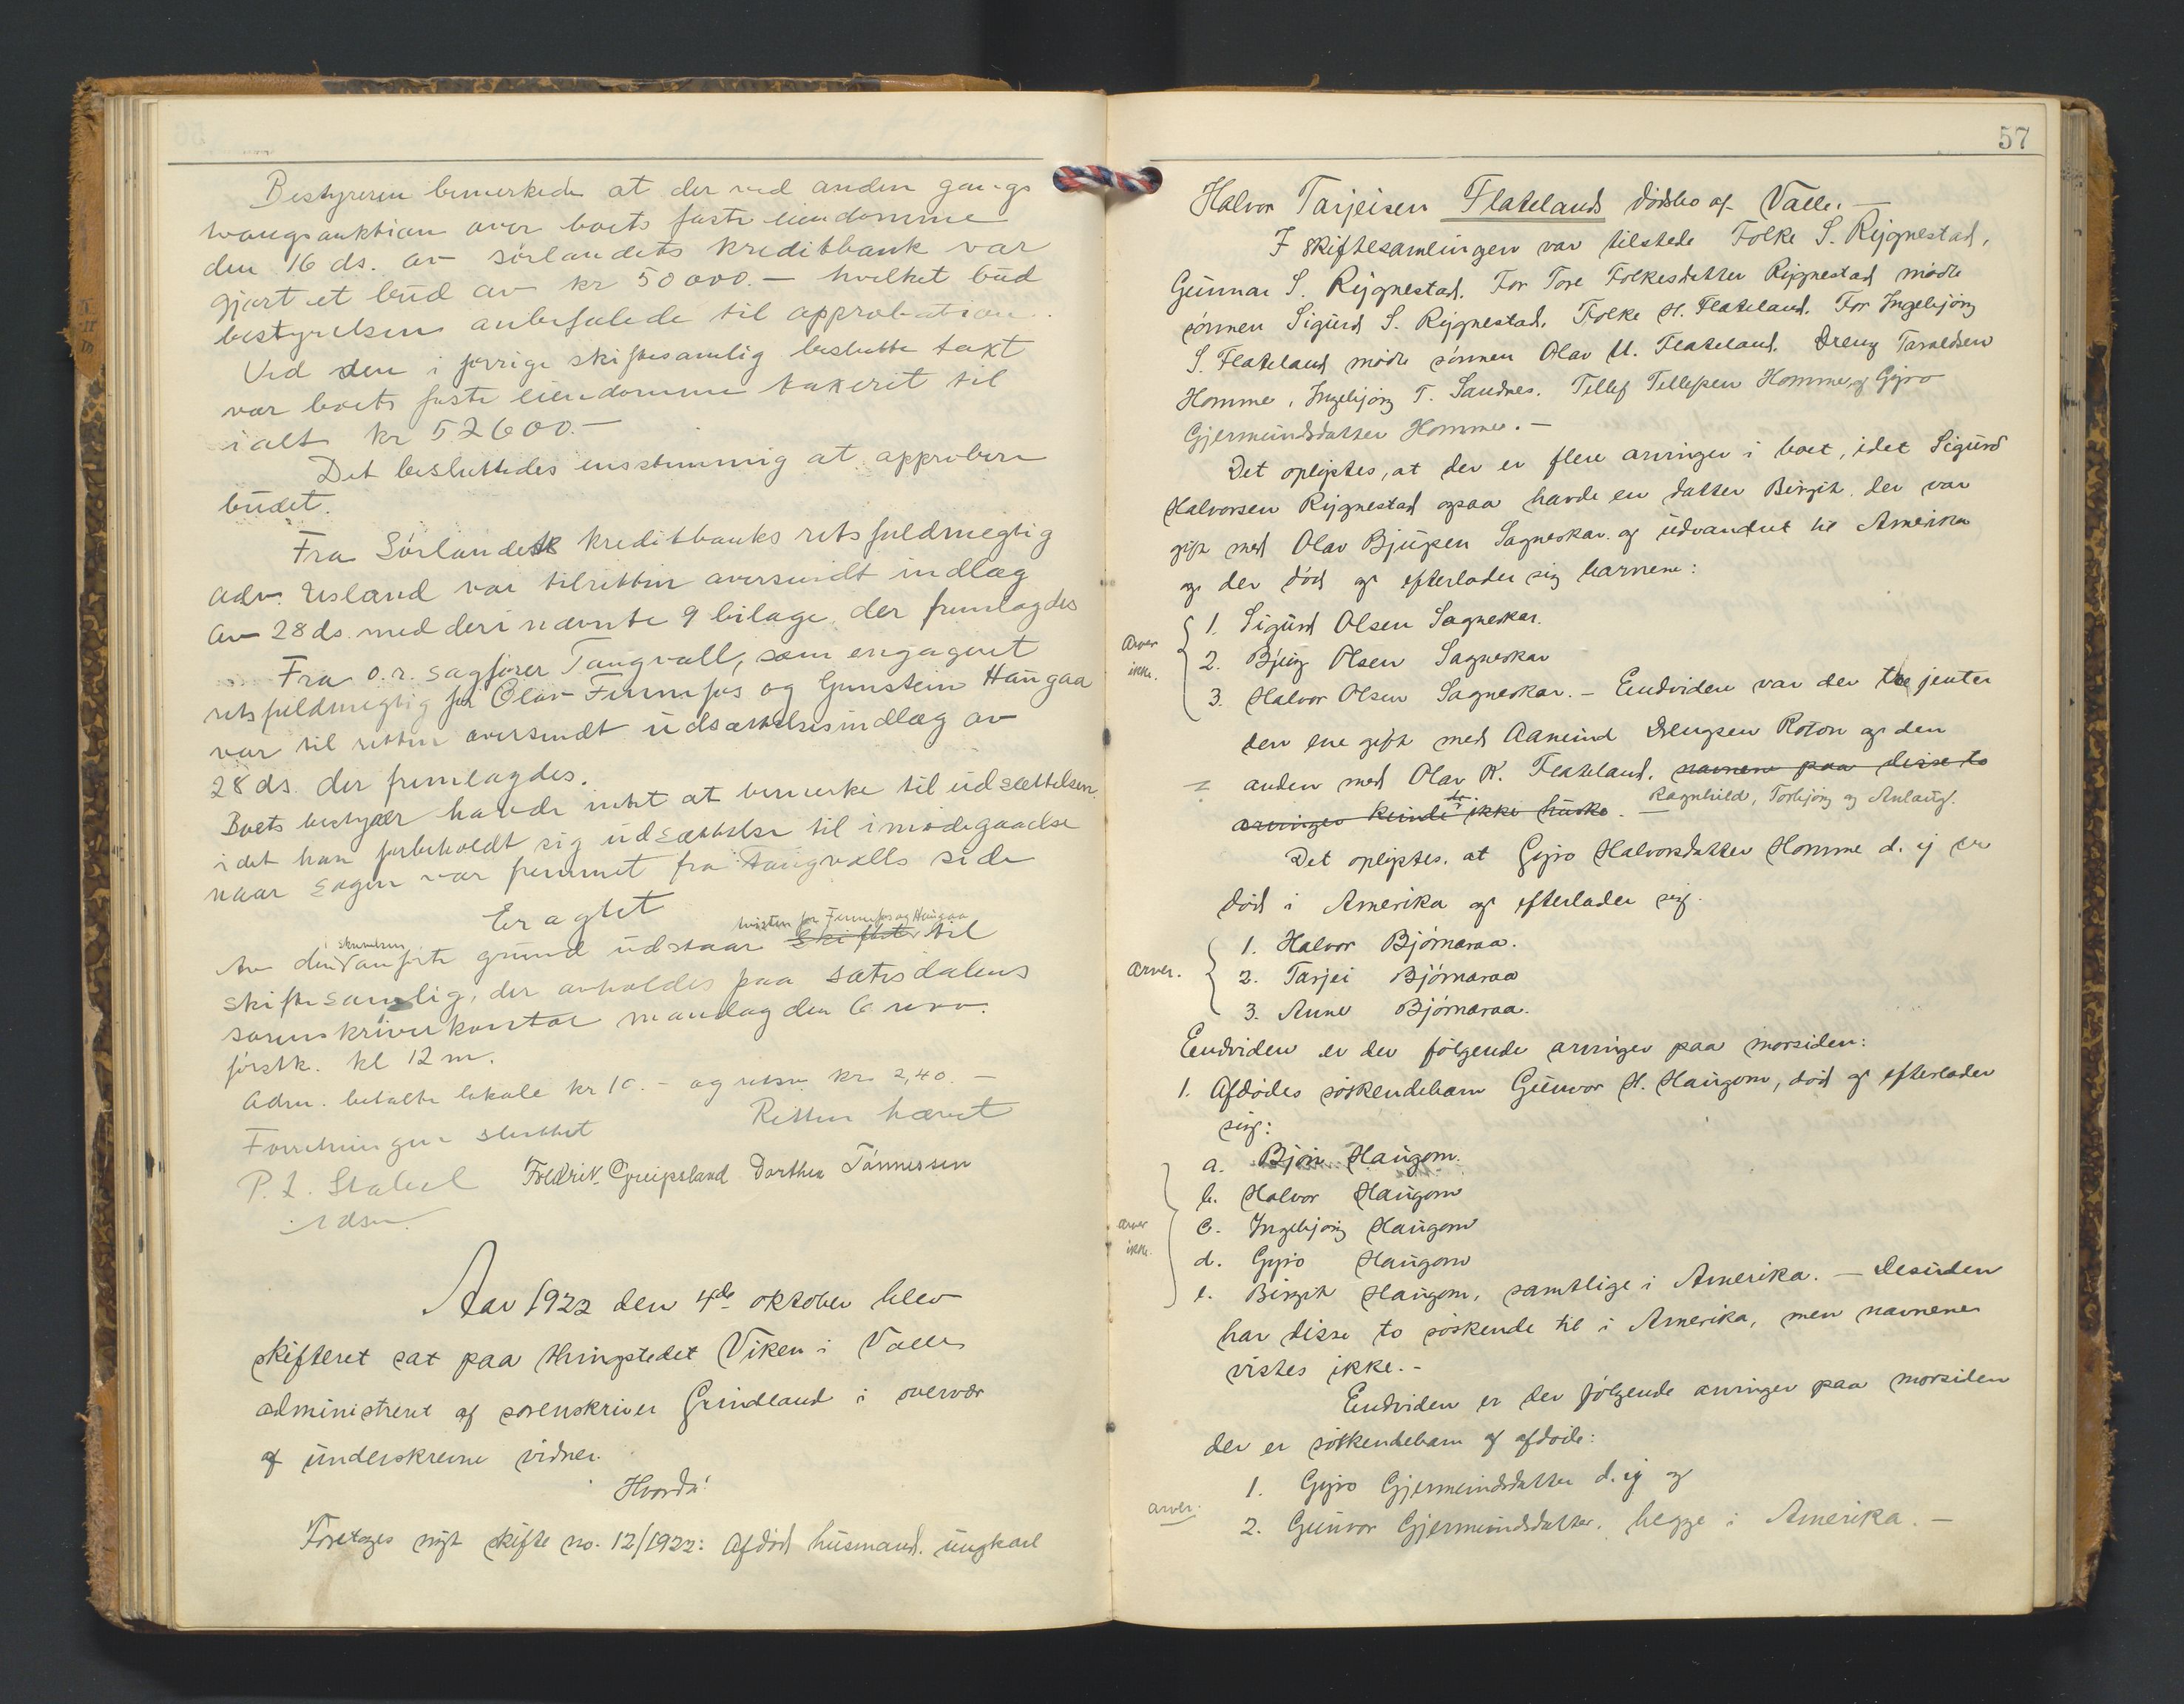 Bestyreren bemerkede at der ved anden gangs
tvangsauktion over boets faste eiendomme
den 16 ds. av sørlandets kreditbank var
gjort et bud av kr 50 000.- hvilket bud
bestyrelsen anbefalede til approbation.
Ved den i forrige skiftesamlig besluttede takt
var boets faste eiendomme taxeret til
ialt kr 52600.-
Det besluttedes ensstemmig at approbere
budet.
Fra Sørlandets kreditbanks retsfuldmegtig
adv. Usland var tilretten oversendt indlæg
av 28 ds. med deri nævnte 9 bilage, der fremlagdes
Fra o.r. sagfører Tangvall, som engageret
retsfuldmegtig for Olav Fennefos og Gunstein Haugaa
var til retten oversendt udsættelsesindlæg av
28 ds. der fremlagdes.
Boets bestyrer havde intet at bemerke til udsættelsen
idet han forbeholdt sig udsættelse til imødegaaelse
naar sagen var fremmet fra Tangvalls side
Eragtet
i skrivelsen tvisten for Fennefos og Haugaa
Av den anførte grund udstaar Skiftet til
skiftesamlig, der avholdes paa sætesdalens
sorenskriverkontor mandag den 6 nov.
førstk. kl 12 m.
Adm. betalte lokale kr 10.- og retsv. kr. 2,40.-
Forretningen sluttet Retten hævet
P. Z. Stabel Fredrik Greipsland Dorthea Tønnessen
Aar 1922 den 4de oktober blev
skifteret sat paa thingstedet Viken i Valle
administreret af sorenskriver Grindland i overvær
af underskrevne vidner.
Hvorda:
Foretages nyt skifte no. 12/1922: Afdød husmand, ungkarl
57
Halvor Tarjeisen Flatelands dødsbo af Valle. -
I skiftesamlingen var tilstede Folke S. Rygnestad,
Gunnar S. Rygnestad. For Tore Folkesdatter Rygnestad mødte
sønnen Sigurd S. Rygnestad. Folke H. Flateland. For Ingebjørg
S. Flateland mødte sønnen Olav U. Flateland. Dreng Taraldsen
Homme, Ingebjørg T. Sandnes. Tellef Tellefsen Homme, og Gyro
Gjermundsdatter Homme. -
Det oplystes, at der er flere arvinger i boet, idet Sigurd
Halvorsen Rygnestad ogsaa havde en datter Birgit, der var
gift med Olav Bjugsen Sagneskar og udvandret til Amerika
og der død og efterlader sig barnene:
1. Sigurd Olsen Sagneskar.
Arver ikke.
2. Bjug Olsen Sagneskar
3. Halvor Olsen Sagneskar. - Endvidere var der tre jenter
den ene gift med Aamund Drengsen Roton og den
anden med Olav K. Flateland. navnene paa disse to
arvinger kunde de ikke huske. - Ragnhild, Torbjørg og Anlaug.
Det oplystes, at Gyro Halvorsdatter Homme d. y er
død i Amerika og efterlader sig.
1. Halvor Bjørnaraa.
Arver.
2. Tarjei Bjørnaraa
3. Anne Bjørnaraa.
Endvidere er der følgende arvinger paa morsiden:
1. Afdødes søskendebarn Gunvor H. Haugom, død og efterlader
sig:
a. Bjørn Haugom.
b. Halvor Haugom
arver ikke.
c. Ingebjørg Haugom
d. Gyro Haugom
e. Birgit Haugom, samtlige i Amerika. - Desuden
har disse to søskende til i Amerika, men navnene
vistes ikke. -
Endvidere er der følgende arvinger paa morsiden
der er søskendebarn af afdøde:
1. Gyro Gjermundsdatter d. y og
arver.
2. Gunvor Gjermundsdatter, begge i Amerika. -